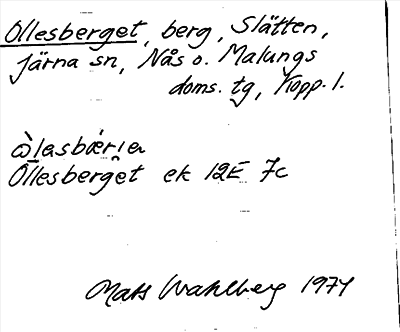 Ollesberget, berg, Slätten,
Järna sn, Nås o. Malungs
doms. tg, Kopp. l.
Ollesberget ek 12E 7c
Mats Wahlberg 1974